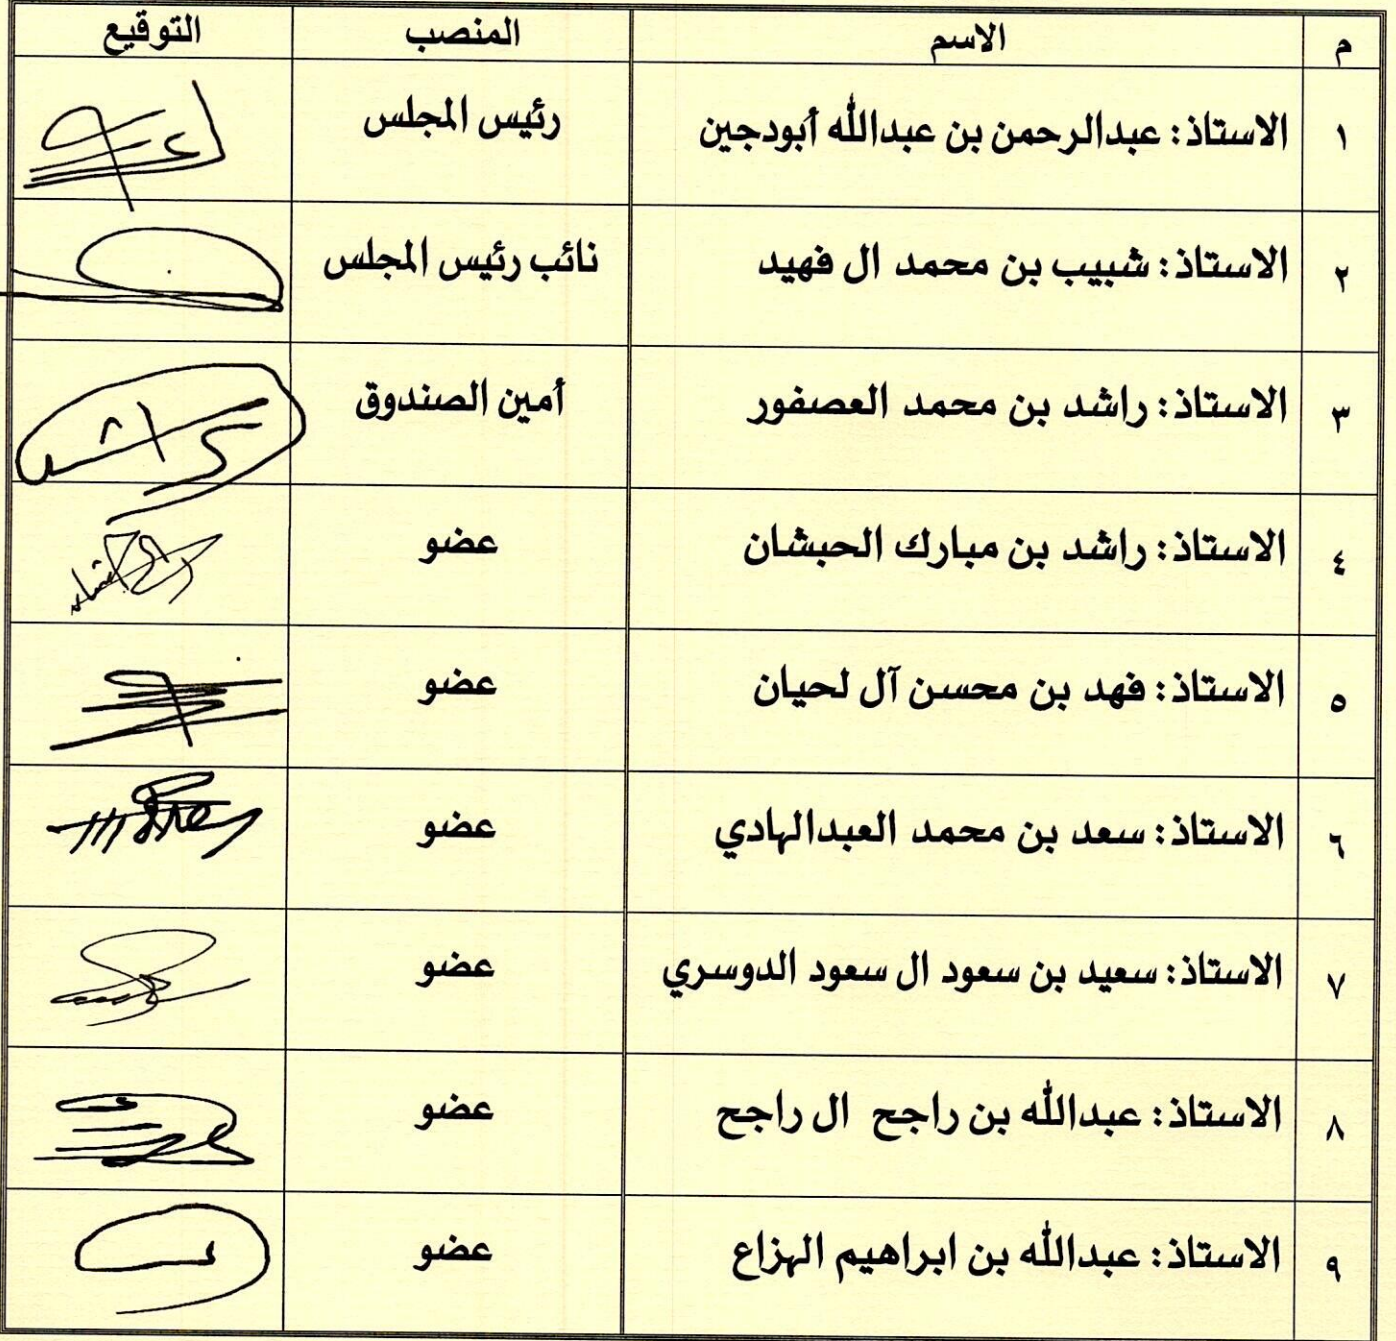 م الاسم المنصب التوقيع
١ الاستاذ: عبدالرحمن بن عبدالله أبودجين رئيس المجلس
٢ الاستاذ: شبيب بن محمد ال فهيد نائب رئيس المجلس
٣ الاستاذ: راشد بن محمد العصفور أمين الصندوق راشد
٤ الاستاذ: راشد بن مبارك الحبشان عضو
٥ الاستاذ: فهد بن محسن آل لحيان عضو
٦ الاستاذ: سعد بن محمد العبدالهادي عضو
٧ الاستاذ: سعيد بن سعود ال سعود الدوسري عضو
٨ الاستاذ: عبدالله بن راجح ال راجح عضو
٩ الاستاذ: عبدالله بن ابراهيم الهزاع عضو